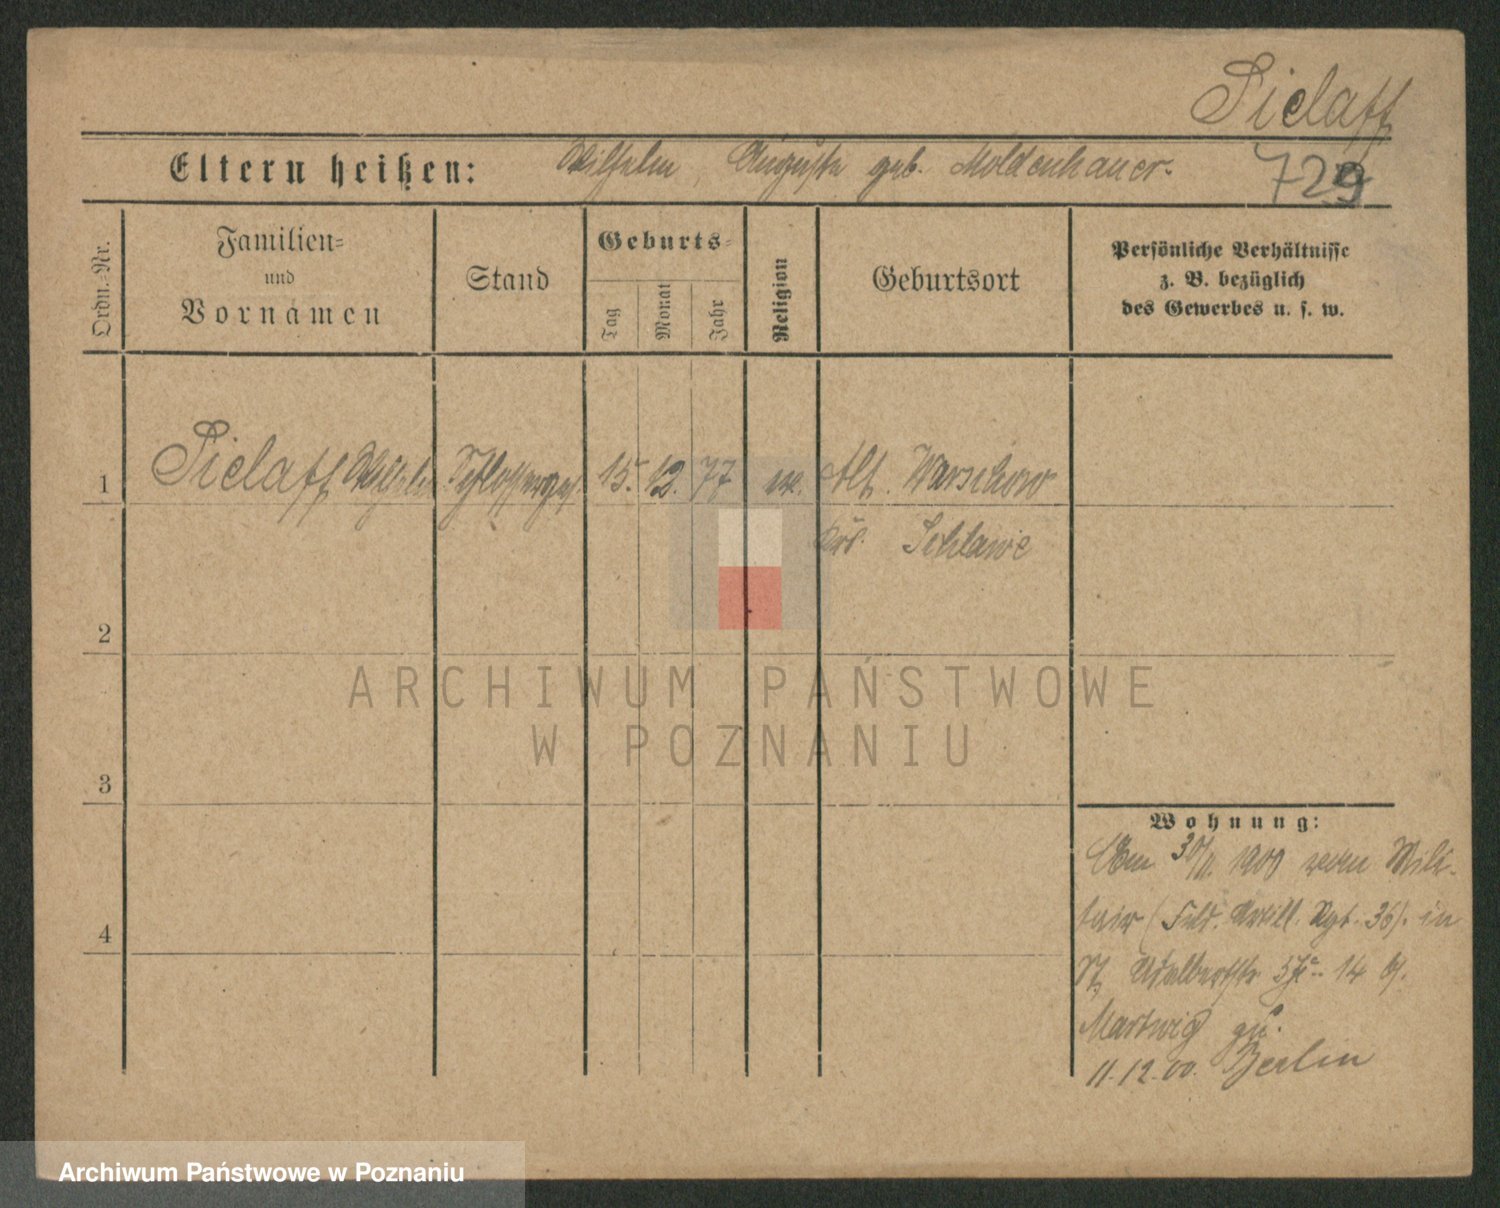 Pielaff
Eltern heißen: Wilhelm, Auguste geb. Moldenhauer.
729
Ordn.-Nr.
Familien-
und
Vornamen
Stand
Geburts-
Tag
Monat
Jahr
Religion
Geburtsort
Persönliche Verhältnisse
z. B. bezüglich
des Gewerbes u. s. w.
1 Pielaff Wilhelm Schlosserges. 15. 12. 77 ev. Alt. Warschow
Krs. Schlawe
2
ARCHIWUM PAŃSTWOWE
W POZNANIU
3
Wohnung:
Am 30/11. 1900 vom Mili-
tair (Feld. Artill. Rgt. 36). in
St. Adalbertstr 14
Martwig zu.
4
11.12.00. Berlin
Archiwum Państwowe w Poznaniu